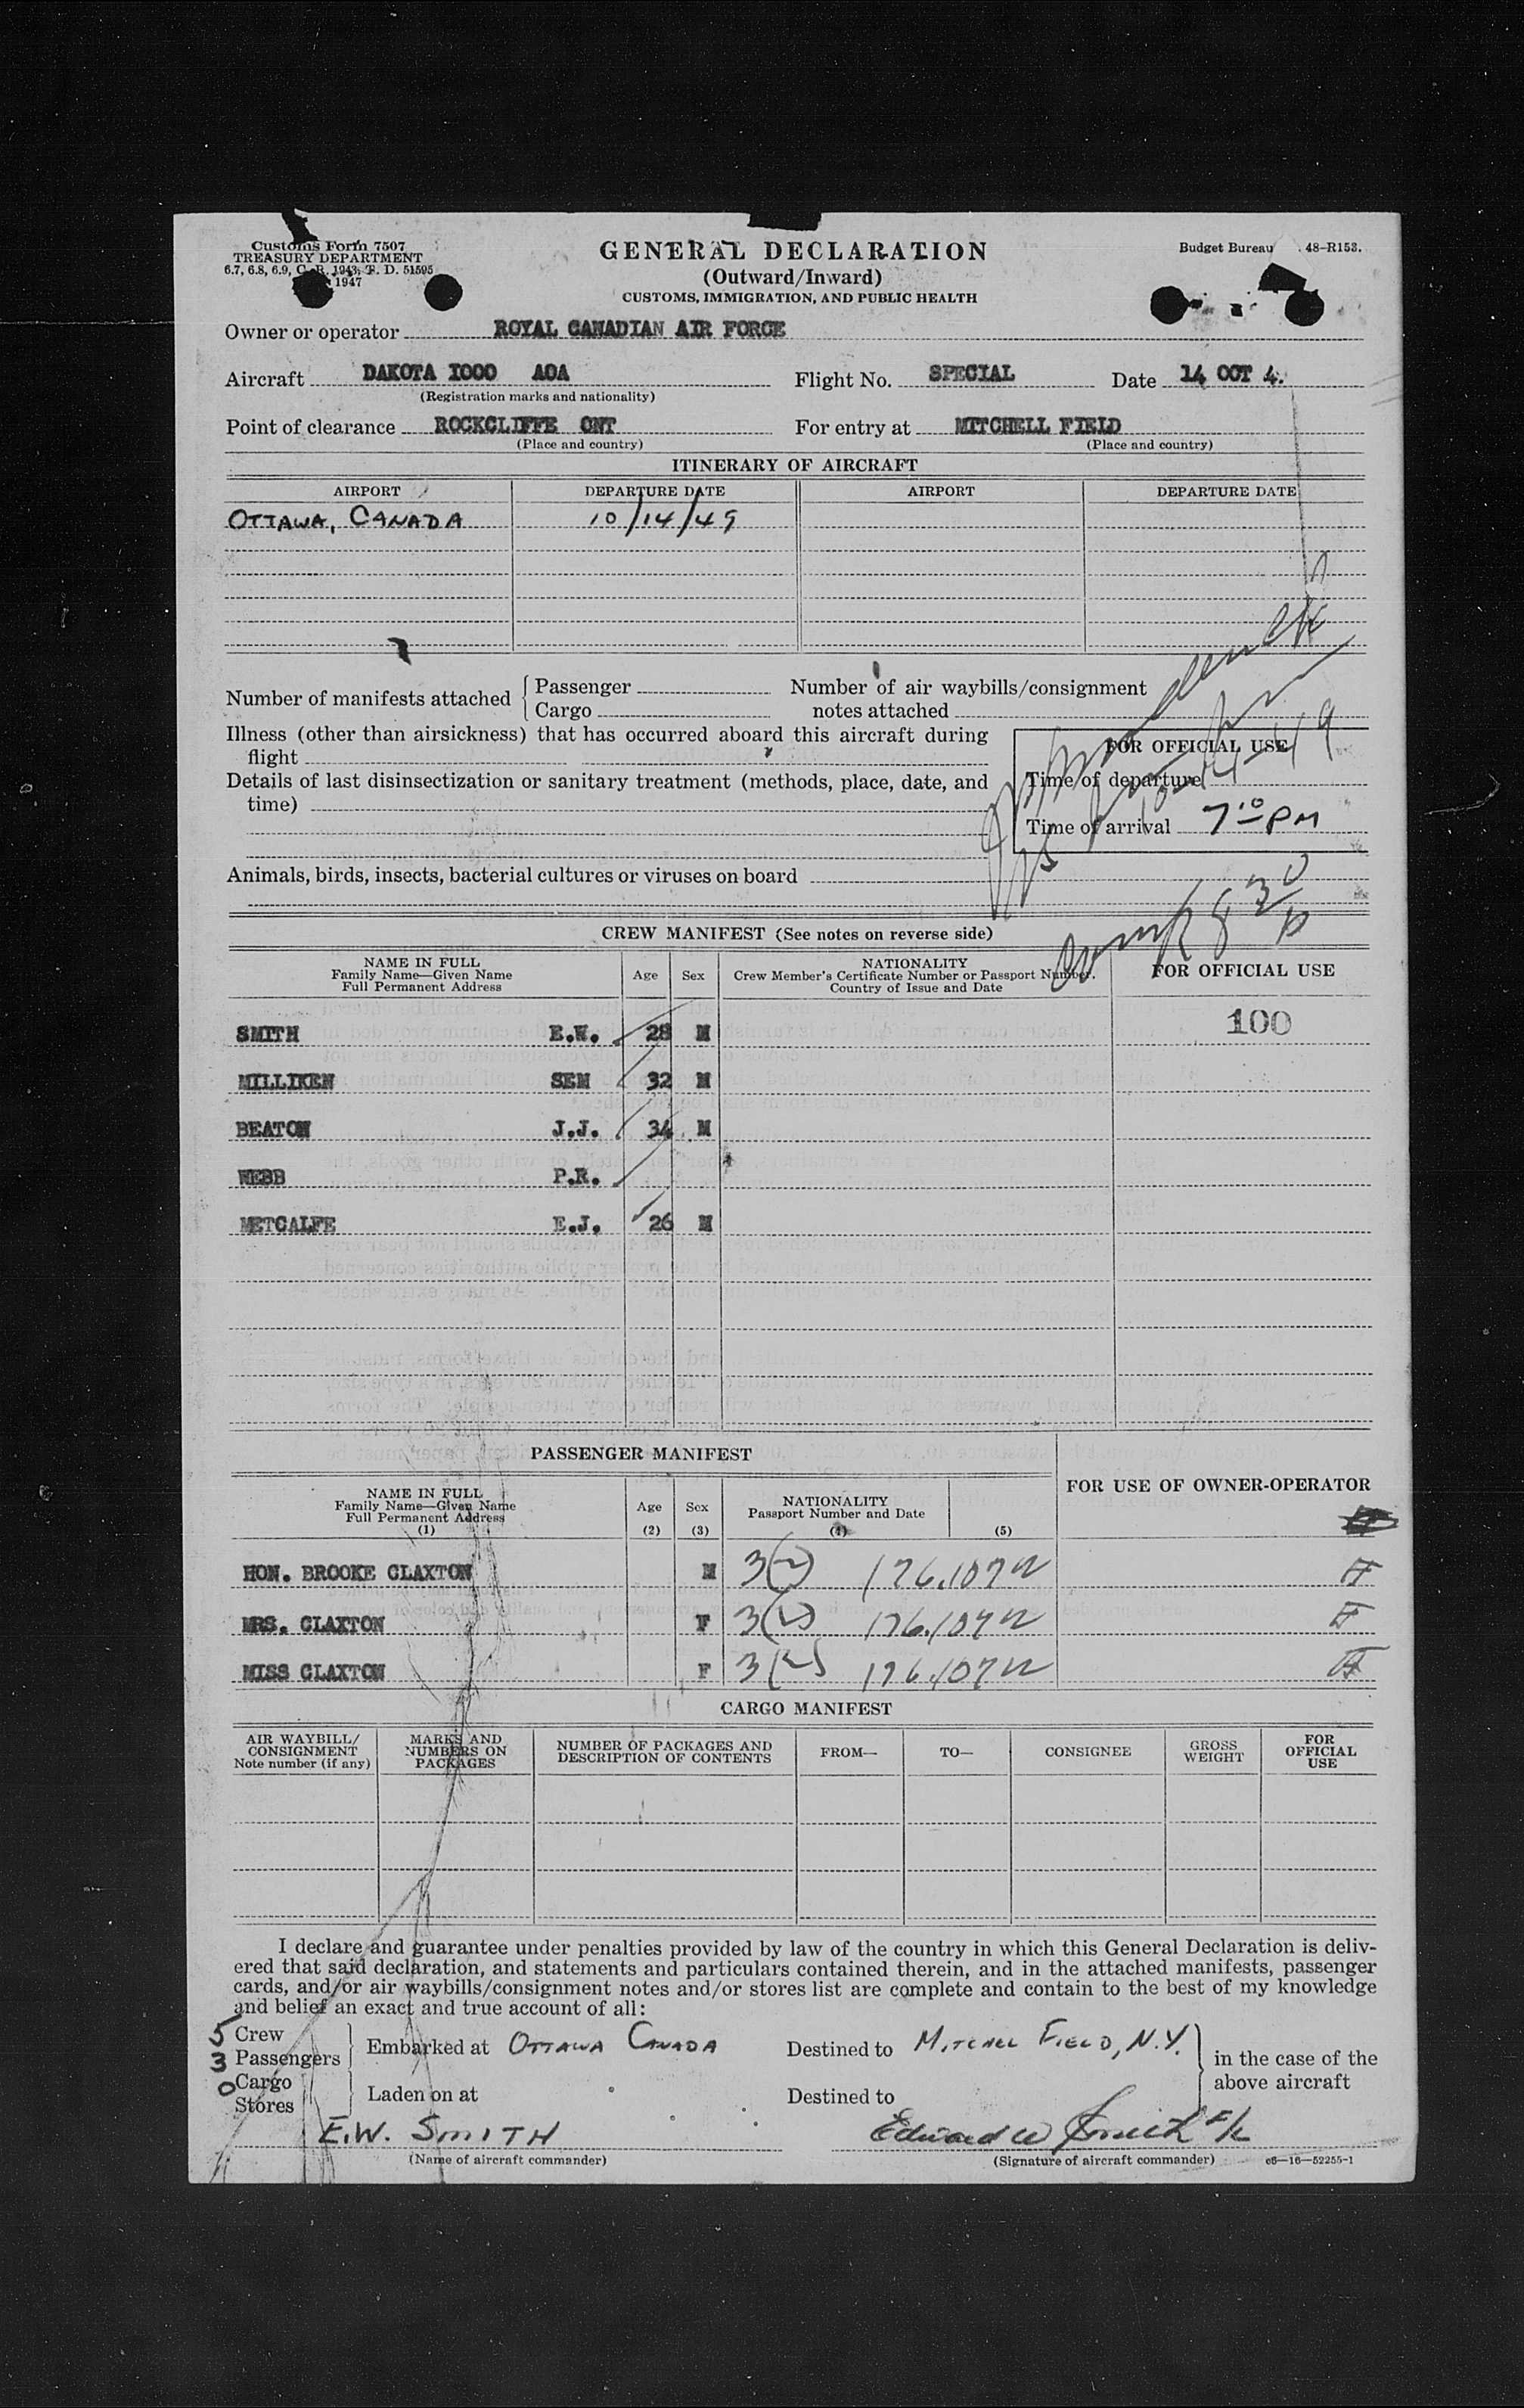 Customs Form 7507
TREASURY DEPARTMENT
6.7, 6.8, 6.9, C. R. 1943, T. D. 51595
1947
GENERAL DECLARATION
(Outward/Inward)
CUSTOMS, IMMIGRATION, AND PUBLIC HEALTH
Budget Bureau 48-R153.
Owner or operator ROYAL CANADIAN AIR FORCE
Aircraft DAKOTA 1000 AOA Flight No. SPECIAL Date 14 OCT 4.
(Registration marks and nationality)
Point of clearance ROCKCLIFFE ONT For entry at MITCHELL FIELD
(Place and country) (Place and country)
ITINERARY OF AIRCRAFT
AIRPORT DEPARTURE DATE AIRPORT DEPARTURE DATE
OTTAWA, CANADA 10/14/49
Number of manifests attached Passenger Number of air waybills/consignment
Cargo notes attached
Illness (other than airsickness) that has occurred aboard this aircraft during
flight
FOR OFFICIAL USE
10-14-49
Details of last disinsectization or sanitary treatment (methods, place, date, and
time)
Time of departure
Time of arrival 7 10 PM
Animals, birds, insects, bacterial cultures or viruses on board
8 30
CREW MANIFEST (See notes on reverse side)
NAME IN FULL
Family Name—Given Name
Full Permanent Address
Age Sex
NATIONALITY
Crew Member's Certificate Number or Passport Number.
Country of Issue and Date
FOR OFFICIAL USE
100
SMITH E.W. 28 M
MILLIKEN SEM 32 M
BEATON J.J. 34 M
WEBB P.R.
METCALFE E.J. 26 M
PASSENGER MANIFEST
FOR USE OF OWNER-OPERATOR
NAME IN FULL
Family Name—Given Name
Full Permanent Address
(1)
Age
(2)
Sex
(3)
NATIONALITY
Passport Number and Date
(4) (5)
HON. BROOKE CLAXTON M 3(2) 176.107
MRS. CLAXTON F 3(2) 176.107
MISS CLAXTON F 3(2) 176.107
CARGO MANIFEST
AIR WAYBILL/
CONSIGNMENT
Note number (if any)
MARKS AND
NUMBERS ON
PACKAGES
NUMBER OF PACKAGES AND
DESCRIPTION OF CONTENTS
FROM— TO— CONSIGNEE
GROSS
WEIGHT
FOR
OFFICIAL
USE
I declare and guarantee under penalties provided by law of the country in which this General Declaration is deliv-
ered that said declaration, and statements and particulars contained therein, and in the attached manifests, passenger
cards, and/or air waybills/consignment notes and/or stores list are complete and contain to the best of my knowledge
and belief an exact and true account of all:
5 Crew
3 Passengers
0 Cargo
Stores
Embarked at OTTAWA CANADA Destined to MITCHEL FIELD, N.Y.
Laden on at Destined to
in the case of the
above aircraft
E.W. SMITH Edward W Smith F/L
(Name of aircraft commander) (Signature of aircraft commander) c6—16—52255-1